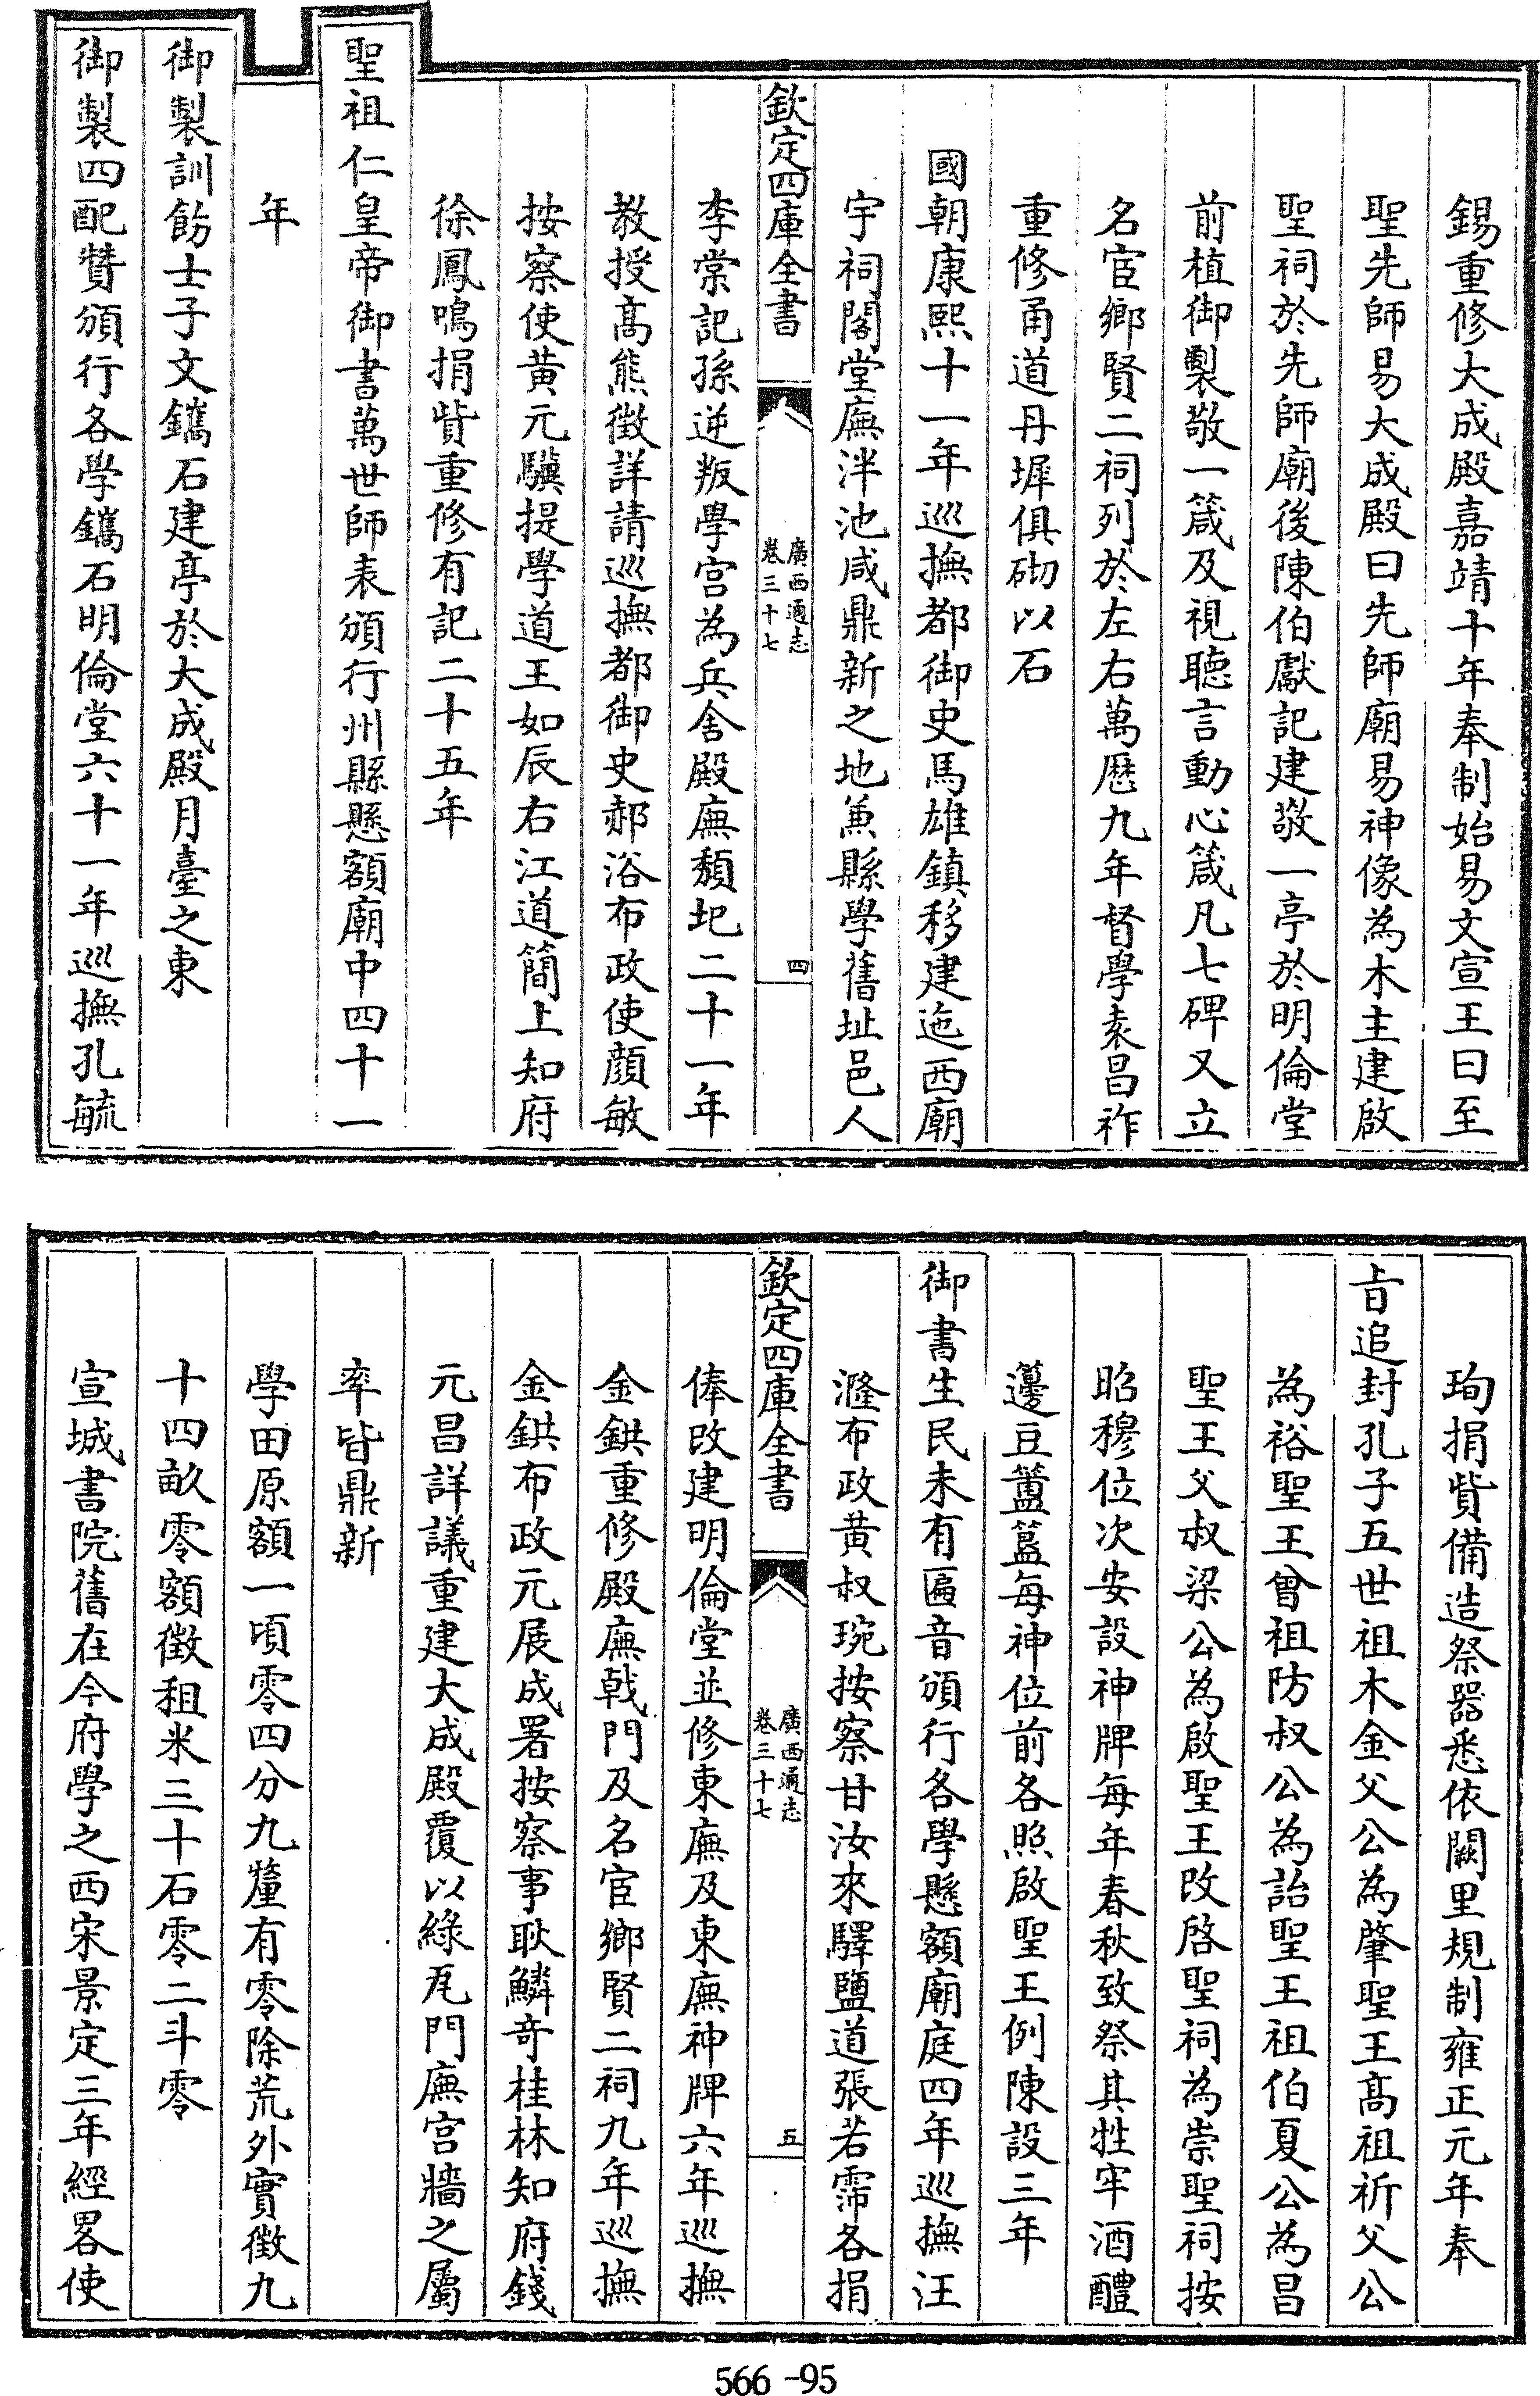 錫重修大成殿嘉靖十年奉制始易文宣王曰至
聖先師易大成殿曰先師廟易神像為木主建啟
聖祠於先師廟後陳伯獻記建敬一亭於明倫堂
前植御製敬一箴及視聽言動心箴凡七碑又立
名宦鄉賢二祠列於左右萬厯九年督學袁昌祚
重修甬道丹墀俱砌以石
國朝康熙十一年巡撫都御史馬雄鎮移建迤西廟
宇祠閣堂廡泮池咸鼎新之地兼縣學舊址邑人
欽定四庫全書
廣西通志
卷三十七
四
李棠記孫逆叛學宫為兵舍殿廡頽圯二十一年
教授髙熊徴詳請巡撫都御史郝浴布政使顔敏
按察使黄元驥提學道王如辰右江道簡上知府
徐鳳鳴捐貲重修有記二十五年
聖祖仁皇帝御書萬世師表頒行州縣懸額廟中四十一
年
御製訓飭士子文鐫石建亭於大成殿月臺之東
御製四配贊頒行各學鐫石明倫堂六十一年巡撫孔毓
珣捐貲備造祭器悉依闕里規制雍正元年奉
㫖追封孔子五世祖木金父公為肇聖王髙祖祈父公
為裕聖王曾祖防叔公為詒聖王祖伯夏公為昌
聖王父叔梁公為啟聖王改啓聖祠為崇聖祠按
昭穆位次安設神牌每年春秋致祭其牲牢酒醴
籩豆簠簋每神位前各照啟聖王例陳設三年
御書生民未有匾音頒行各學懸額廟庭四年巡撫汪
漋布政黄叔琬按察甘汝來驛鹽道張若霈各捐
欽定四庫全書
廣西通志
卷三十七
五
俸改建明倫堂並修東廡及東廡神牌六年巡撫
金鉷重修殿廡戟門及名宦鄉賢二祠九年巡撫
金鉷布政元展成署按察事耿鱗奇桂林知府錢
元昌詳議重建大成殿覆以綠瓦門廡宫牆之屬
率皆鼎新
學田原額一頃零四分九釐有零除荒外實徵九
十四畝零額徵租米三十石零二斗零
宣城書院舊在今府學之西宋景定三年經畧使
566-95